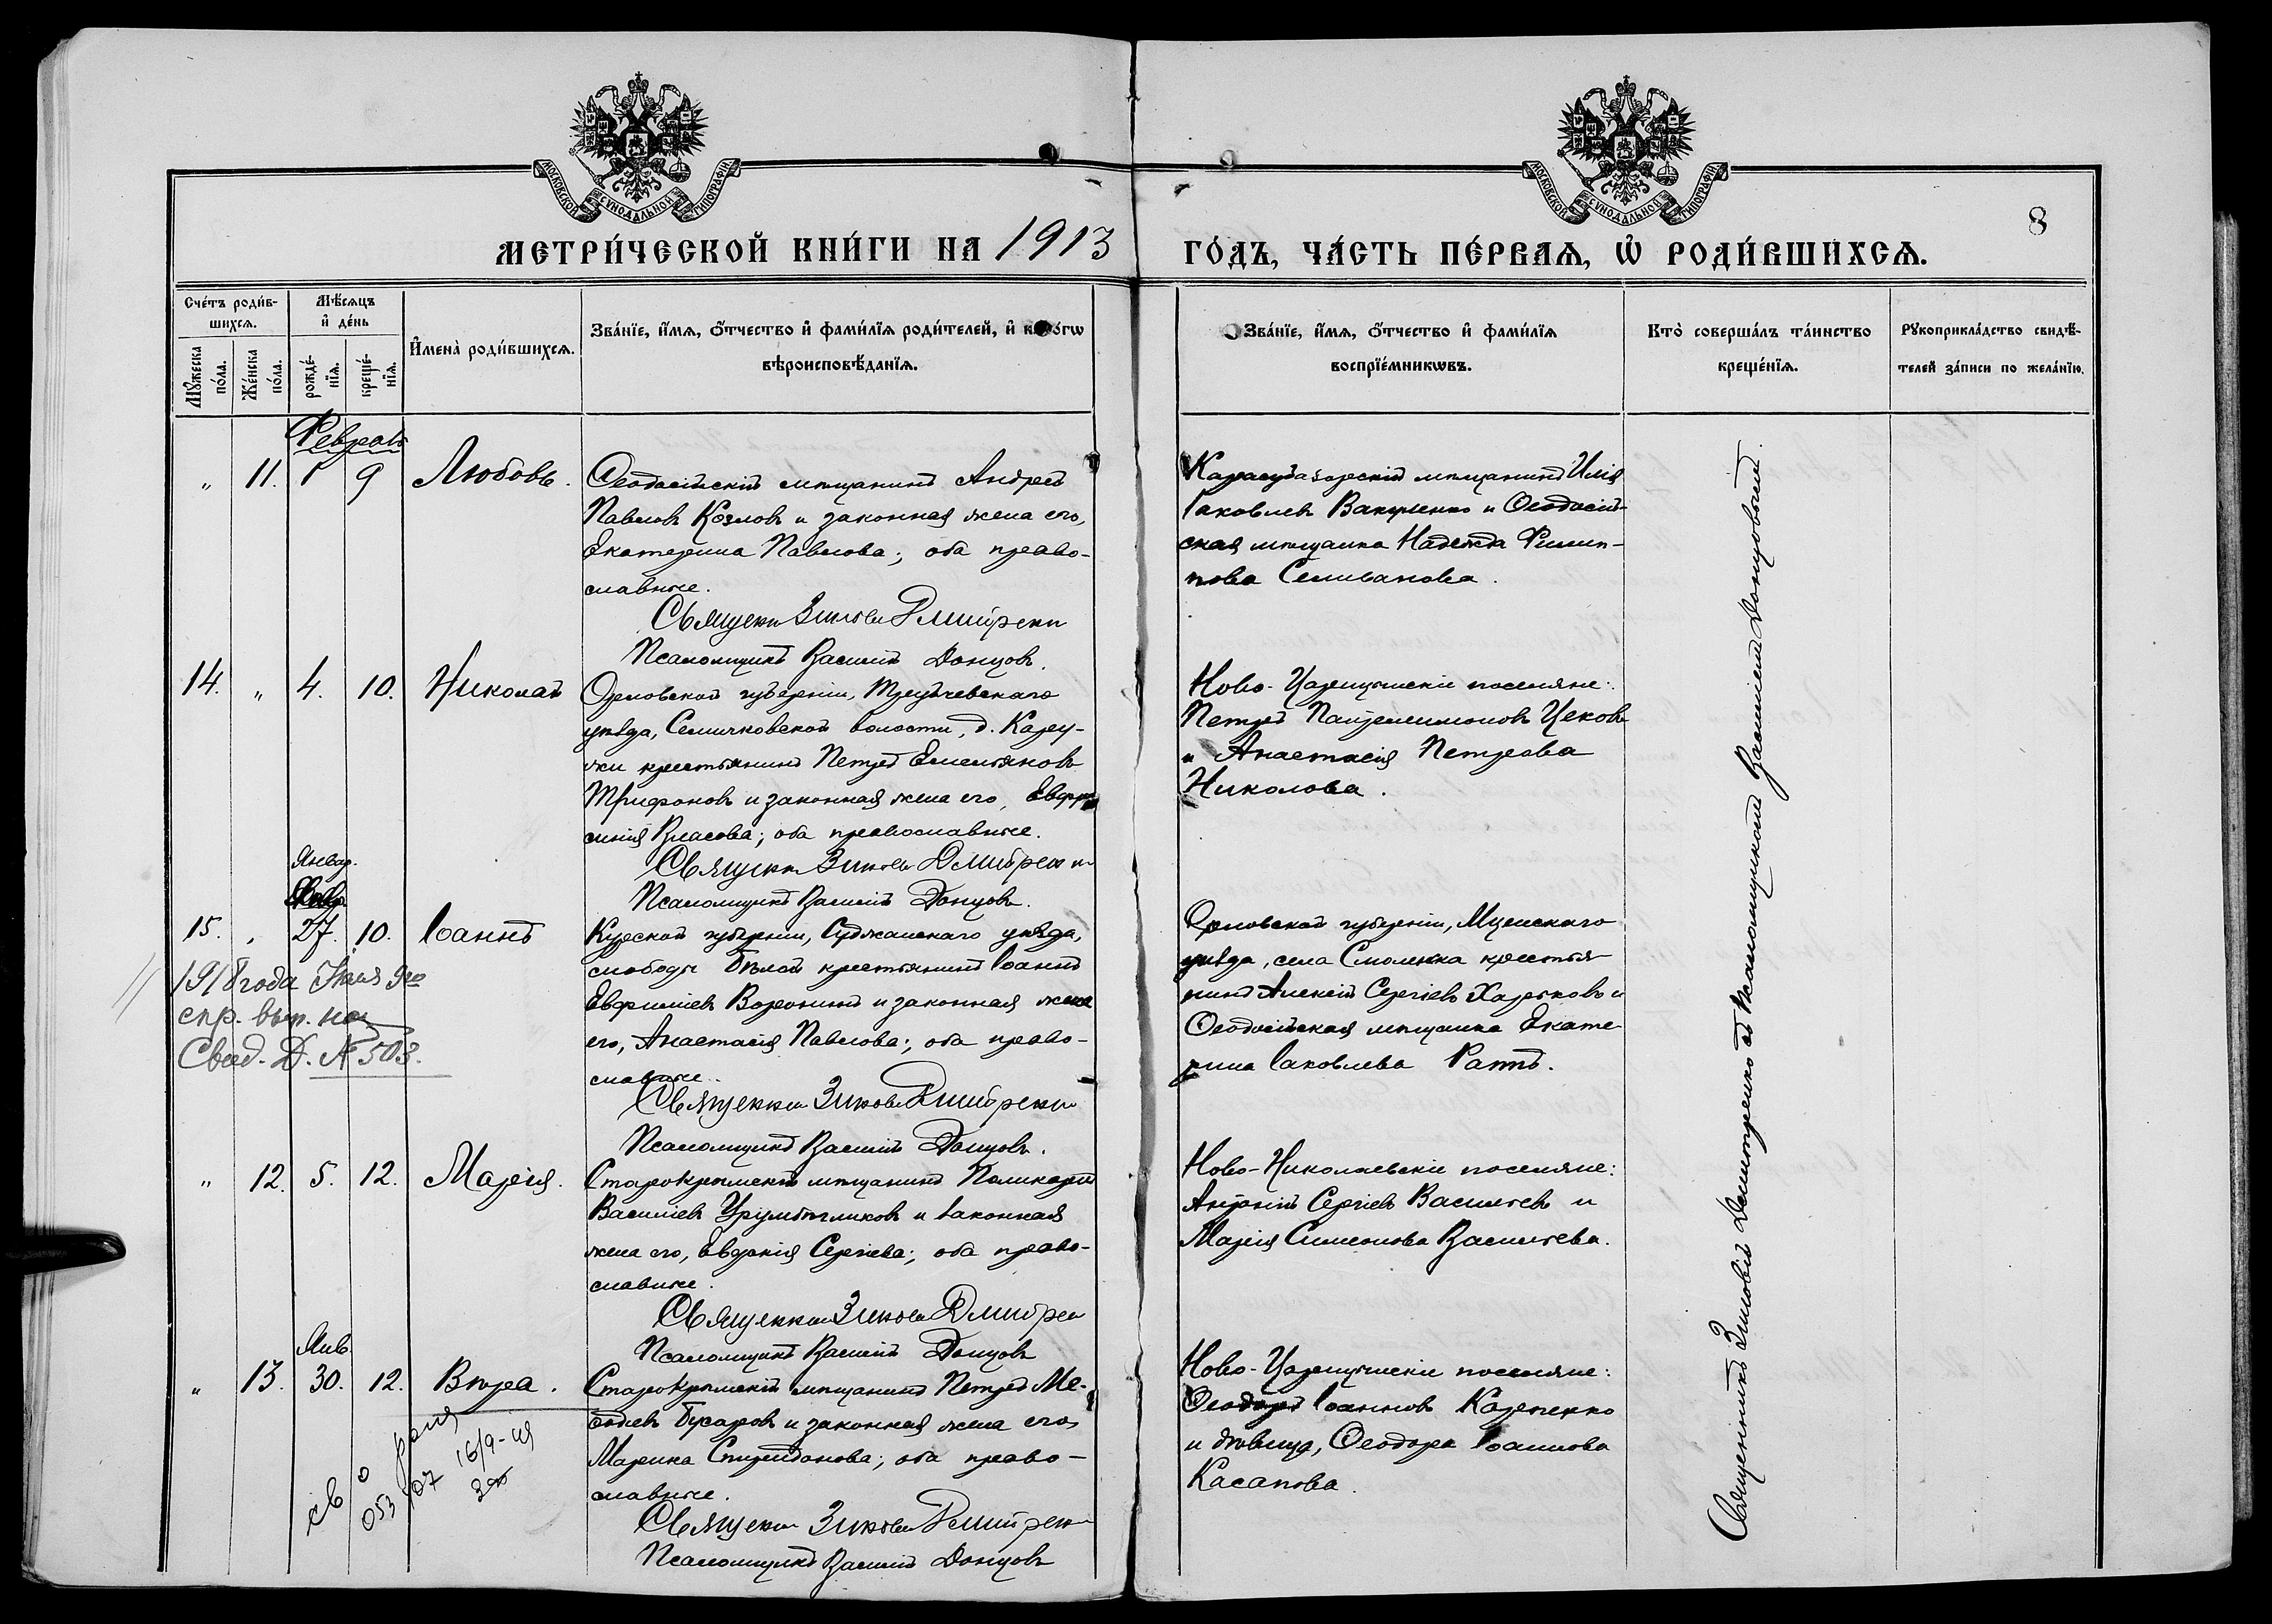 МОСКОВСКОЙ СѴНОДАЛЬНОЙ ТИПОГРАФІИ.
МОСКОВСКОЙ СѴНОДАЛЬНОЙ ТИПОГРАФІИ.
8
МЕТРИ́ЧЕСКОЙ КНИ́ГИ НА 1913
ГО́ДЪ, ЧА́СТЬ ПЕ́РВАѦ, Ѡ҆ РОДИ́ВШИХСѦ.
Сче́тъ роди́в-
шихсѧ.
Мѣ́сѧцъ
и҆ де́нь
Мꙋ́жеска
по́ла.
Же́нска
по́ла.
рожде́-
нїѧ.
креще́-
нїѧ.
И҆мена̀ роди́вшихсѧ.
Зва́нїе, и҆́мѧ, ѻ҆́тчество и҆ фами́лїѧ роди́телей, и҆ ко́гѡ
вѣроисповѣ́данїѧ.
Зва́нїе, и҆́мѧ, ѻ҆́тчество и҆ фами́лїѧ
воспрїе́мникѡвъ.
Кто̀ соверша́лъ та́инство
креще́нїѧ.
Рꙋкоприкла́дство свидѣ́-
телей за́писи по жела́нїю.
Февраль
" 11. 1 9 Любовь.
Ѳеодосійскій мѣщанинъ Андрей
Павловъ Козловъ и законная жена его,
Екатерина Павлова; оба право-
славные.
Священникъ Зиновій Дмитренко
Псаломщикъ Василій Донцовъ.
Карасубазарскій мѣщанинъ Илія
Іаковлевъ Вакуленко и Ѳеодосій-
ская мѣщанка Надежда Филип-
пова Селиванова.
14. " 4. 10. Николай
Орловской губерніи, Трубчевскаго
уѣзда, Семячковской волости, д.
крестьянинъ Петръ Емельяновъ
Трифоновъ и законная жена его, Евфро
синія Власова; оба православные.
Священникъ Зиновій Дмитренко
Псаломщикъ Василій Донцовъ.
Ново-Царицынскіе поселяне:
Петръ Пантелеимоновъ Цековъ
и Анастасія Петрова
Николова.
Январ.
15. " 27. 10. Іоаннъ
Курской губерніи, Суджанскаго уѣзда,
слободы Бѣлой крестьянинъ Іоаннъ
Евфиміевъ Воронинъ и законная жена
его, Анастасія Павлова; оба право-
славные.
Священникъ Зиновій Дмитренко
Псаломщикъ Василій Донцовъ.
Орловской губерніи, Мценскаго
уѣзда, села крестья
нинъ Алексій Сергіевъ Харьковъ и
Ѳеодосійская мѣщанка Екате
рина Іаковлева Раппъ.
1918 года 9го
спр. вып. на
Свид. Д. № 503.
" 12. 5. 12. Марія.
Старокрымскій мѣщанинъ Поликарпъ
Василіевъ и законная
жена его, Евдокія Сергіева; оба право-
славные.
Священникъ Зиновій Дмитренко
Псаломщикъ Василій Донцовъ
Ново-Николаевскіе поселяне:
Антоній Сергіевъ Васильевъ и
Марія Симеонова Васильева.
Янв.
" 13. 30. 12. Вѣра.
Старокрымскій мѣщанинъ Петръ Ме-
ѳодіевъ Бусаровъ и законная жена его,
Марина Спиридонова; оба право-
славные.
Священникъ Зиновій Дмитренко
Псаломщикъ Василій Донцовъ
Ново-Царицынскіе поселяне:
Ѳеодоръ Іоанновъ Карпенко
и дѣвица, Ѳеодора Іоаннова
Касапова.
Священникъ Зиновій Дмитренко съ псаломщикомъ Василіемъ Донцовымъ.